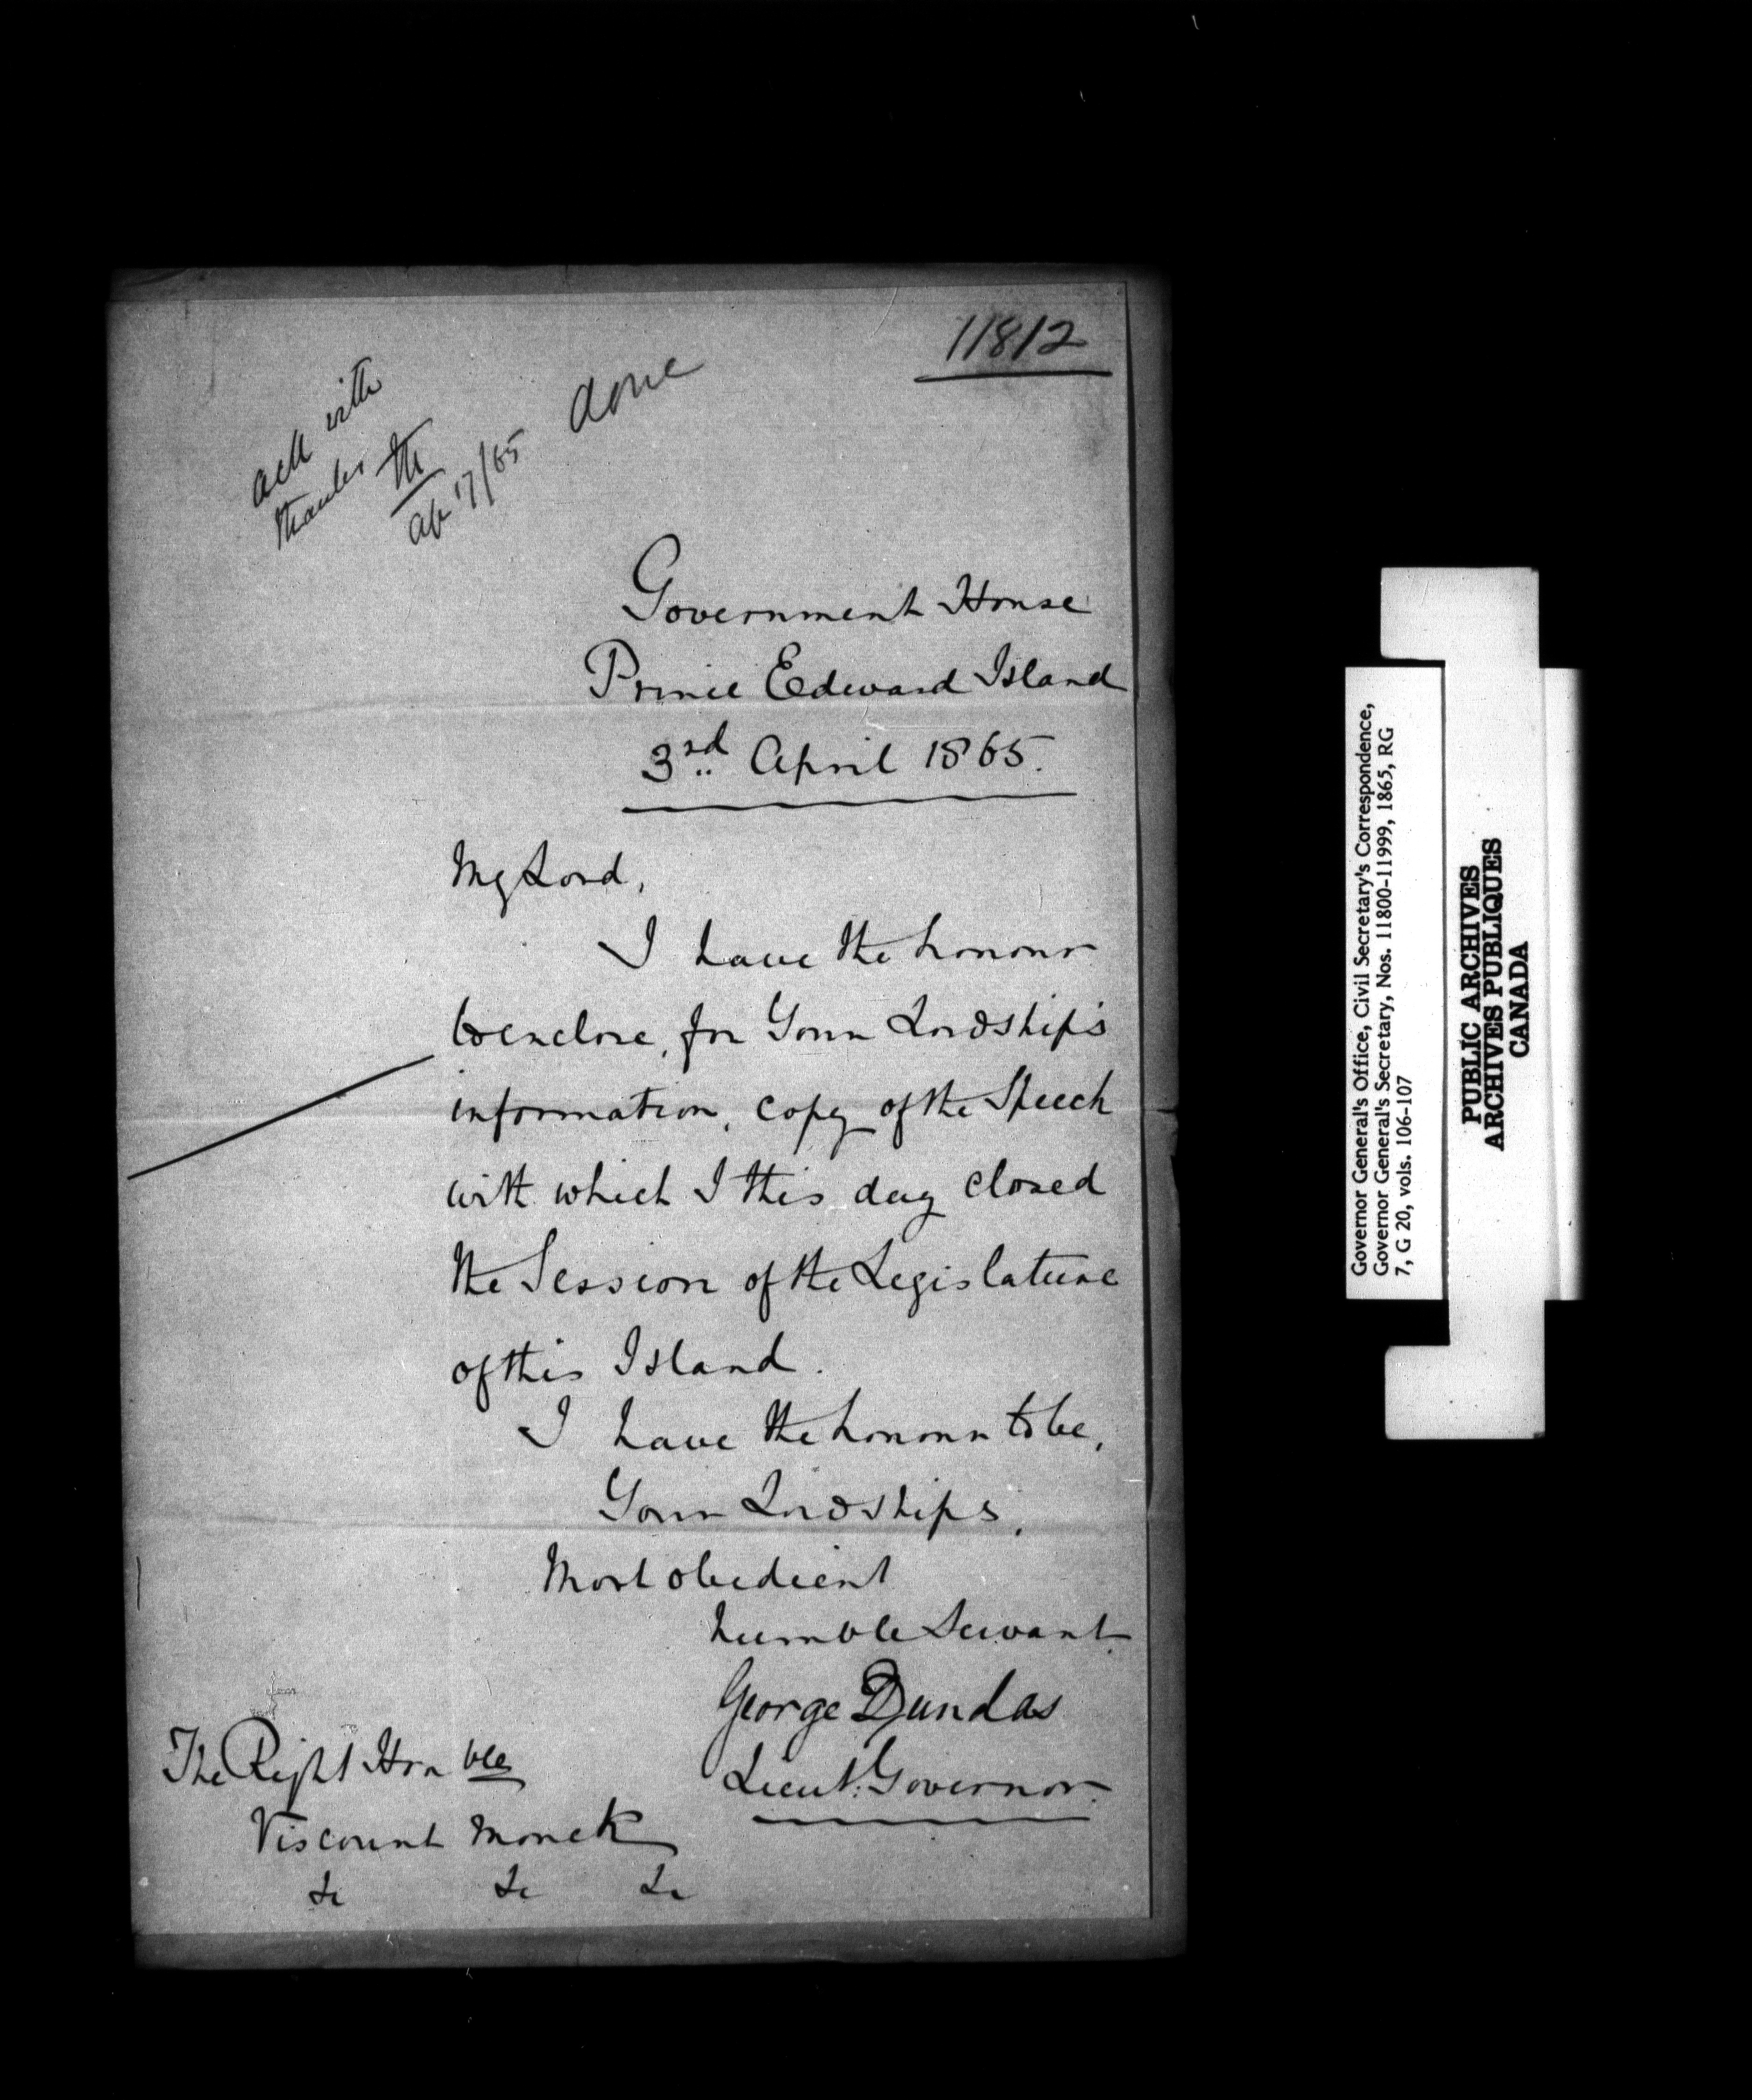 11812
ack with
thanks
Ap 17/65
done
Government House
Prince Edward Island
3rd April 1865.
My Lord,
I have the honour
to enclose, for Your Lordship's
information, copy of the Speech
with which I this day closed
the Session of the Legislature
of this Island.
I have the honour to be,
Your Lordships,
Most obedient
humble Servant
George Dundas
Lieut. Governor.
The Right Honble
Viscount Monck
&c &c &c
Governor General's Office, Civil Secretary's Correspondence,
Governor General's Secretary, Nos. 11800-11999, 1865, RG
7, G 20, vols. 106-107
PUBLIC ARCHIVES
ARCHIVES PUBLIQUES
CANADA